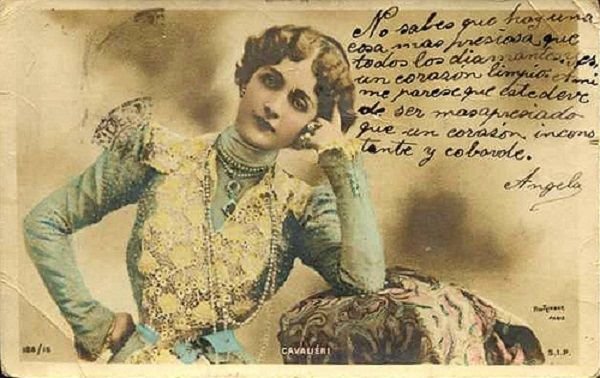 No sabes que hay una
cosa mas presiosa que
todos los diamantes. es
un corazon limpio. A mi
me parese que este deve
de ser mas apresiado
que un corazon incons
tante y cobarde.
Angela
Reutlinger
PARIS
188/15
CAVALIERI
S.I.P.